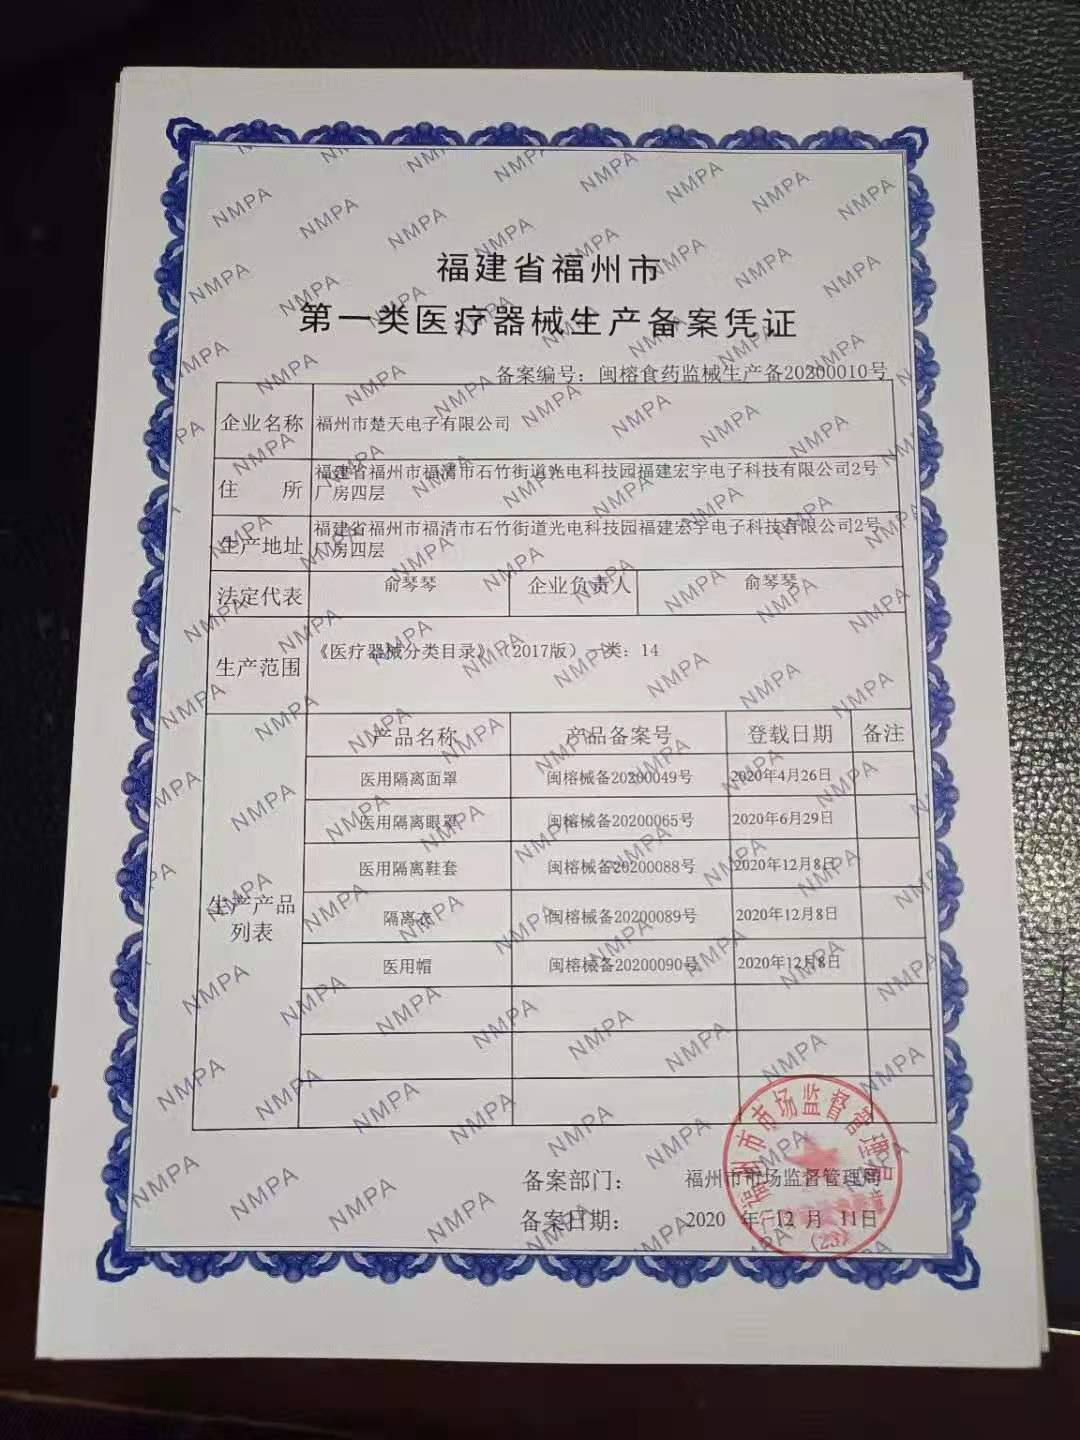 福建省福州市
第一类医疗器械生产备案凭证
备案编号：闽榕食药监械生产备20200010号
企业名称 福州市楚天电子有限公司
住 所 福建省福州市福清市石竹街道光电科技园福建宏宇电子科技有限公司2号
厂房四层
生产地址 福建省福州市福清市石竹街道光电科技园福建宏宇电子科技有限公司2号
厂房四层
法定代表 俞琴琴 企业负责人 俞琴琴
生产范围 《医疗器械分类目录》（2017版）一类：14
生产产品
列表
产品名称 产品备案号 登载日期 备注
医用隔离面罩 闽榕械备20200049号 2020年4月26日
医用隔离眼罩 闽榕械备20200065号 2020年6月29日
医用隔离鞋套 闽榕械备20200088号 2020年12月8日
隔离衣 闽榕械备20200089号 2020年12月8日
医用帽 闽榕械备20200090号 2020年12月8日
备案部门： 福州市市场监督管理局
备案日期： 2020 年 12 月 11日
福州市市场监督管理局
(23)
NMPA